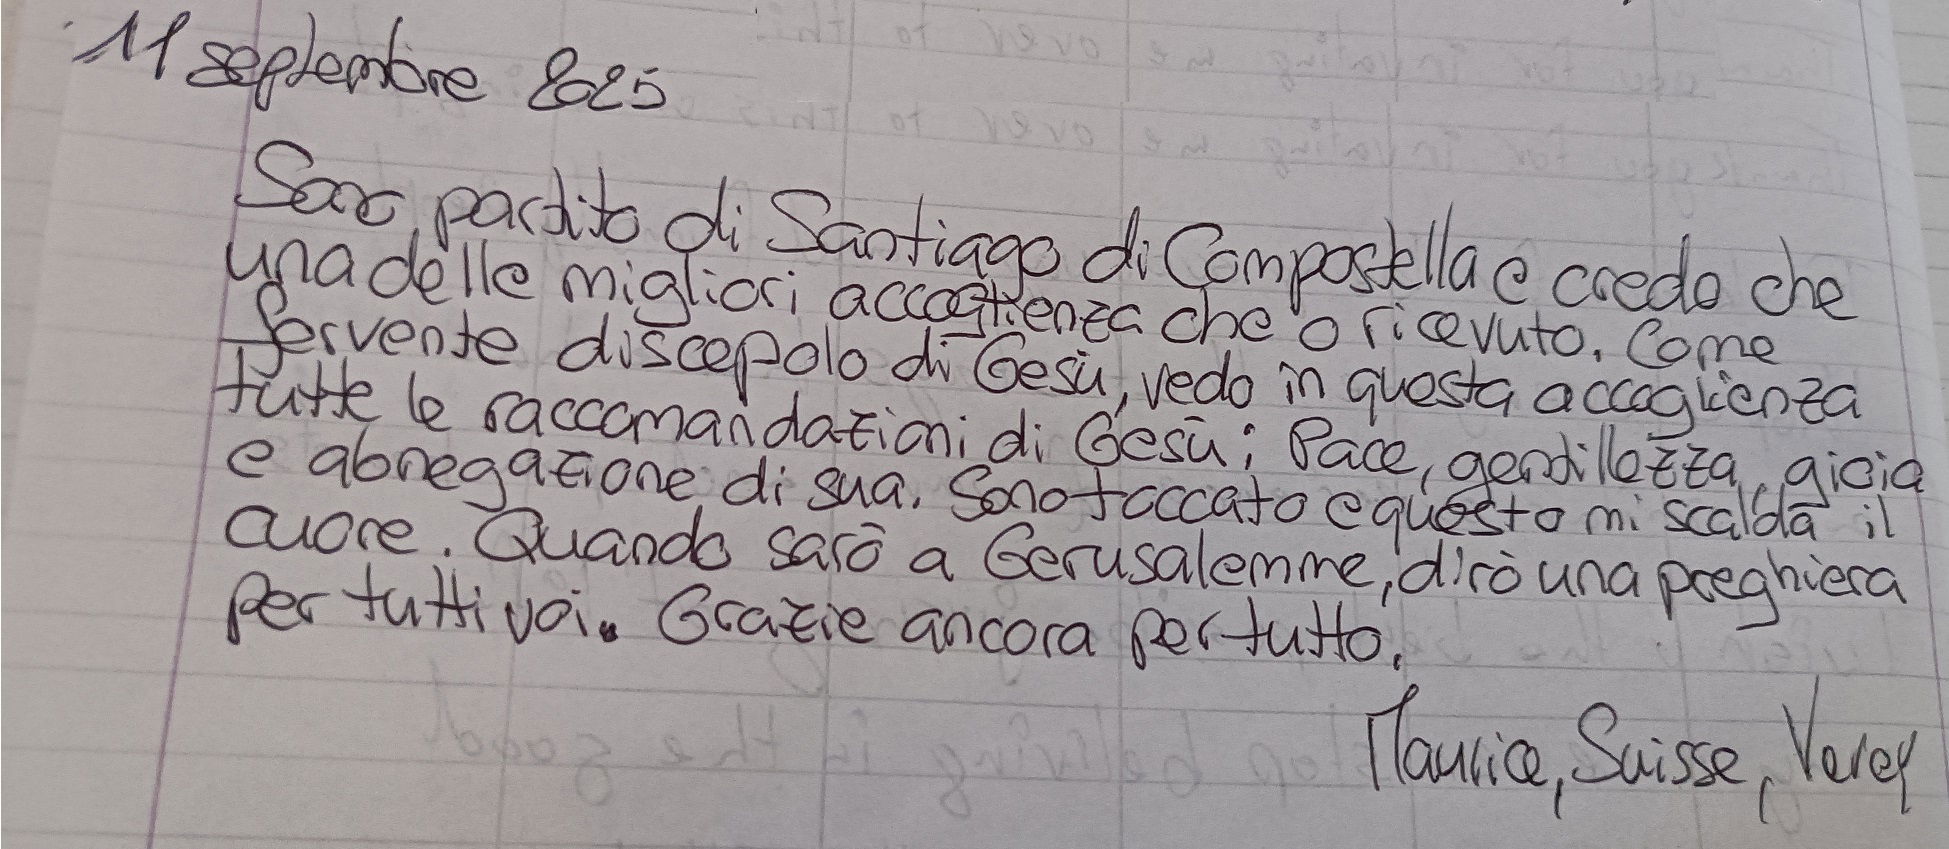 11 septembre 2025
partito di Santiago di Compostella e credo che
una delle migliori accoglienza che o ricevuto. Come
fervente discepolo di Gesù, vedo in questa accoglienza
tutte le raccomandazioni di Gesù; Pace, gentillezza, gioia
e abnegazione di sua. Sono toccato e questo mi scalda il
cuore. Quando sarò a Gerusalemme, dirò una preghiera
per tutti voi. Grazie ancora per tutto.
Maurice, Suisse,